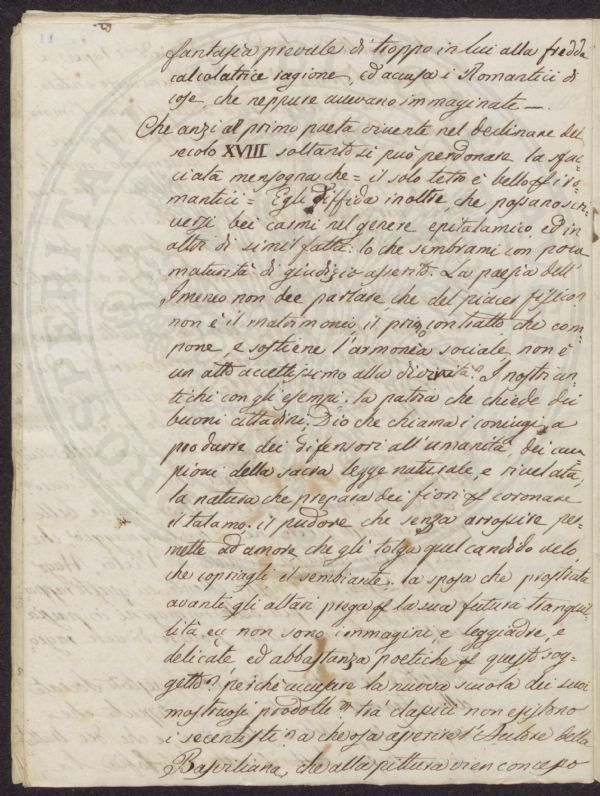 fantasia prevale di troppo in lui alla fredda
calcolatrice ragione, ed accusa i Romantici di
cose, che neppure avevano immaginate —
Che anzi al primo poeta vivente nel declinare del
secolo XVIII soltanto si può perdonare la sfac-
ciata mensogna che = il solo tetro è bello pei ro-
mantici = Egli diffida inoltre che possano scri-
versi bei carmi nel genere epitalamico, ed in
altri di simil fatta: lo che sembrami con poca
maturità di giudizio asserito. La poesia dell'
Imeneo non dee parlare che del piacer fisico?
non è il matrimonio il primo contratto che com-
pone, e sostiene l'armonia sociale, non è
un atto accettissimo alla divinità? I nostri an-
tichi con gli esempi: la patria che chiede dei
buoni cittadini: Dio che chiama i coniugi a
produrre dei difensori all'umanità, dei cam-
pioni della sacra legge naturale, e rivelata,
la natura che prepara dei fiori per coronare
il talamo: il pudore che senza arrossire per-
mette ad amore che gli tolga quel candido velo
che coprivagli il sembiante: la sposa che prostrata
avante gli altari prega per la sua futura tranqui-
lità, non sono immagini, e leggiadre, e
delicate, ed abbastanza poetiche per questo sog-
getto? perchè accusare la nuova scuola dei suoi
mostruosi prodotti? tra' classici non esistono
i secentisti? a che osa asserire l'Autore della
Basviliana, che alla pittura vien concesso